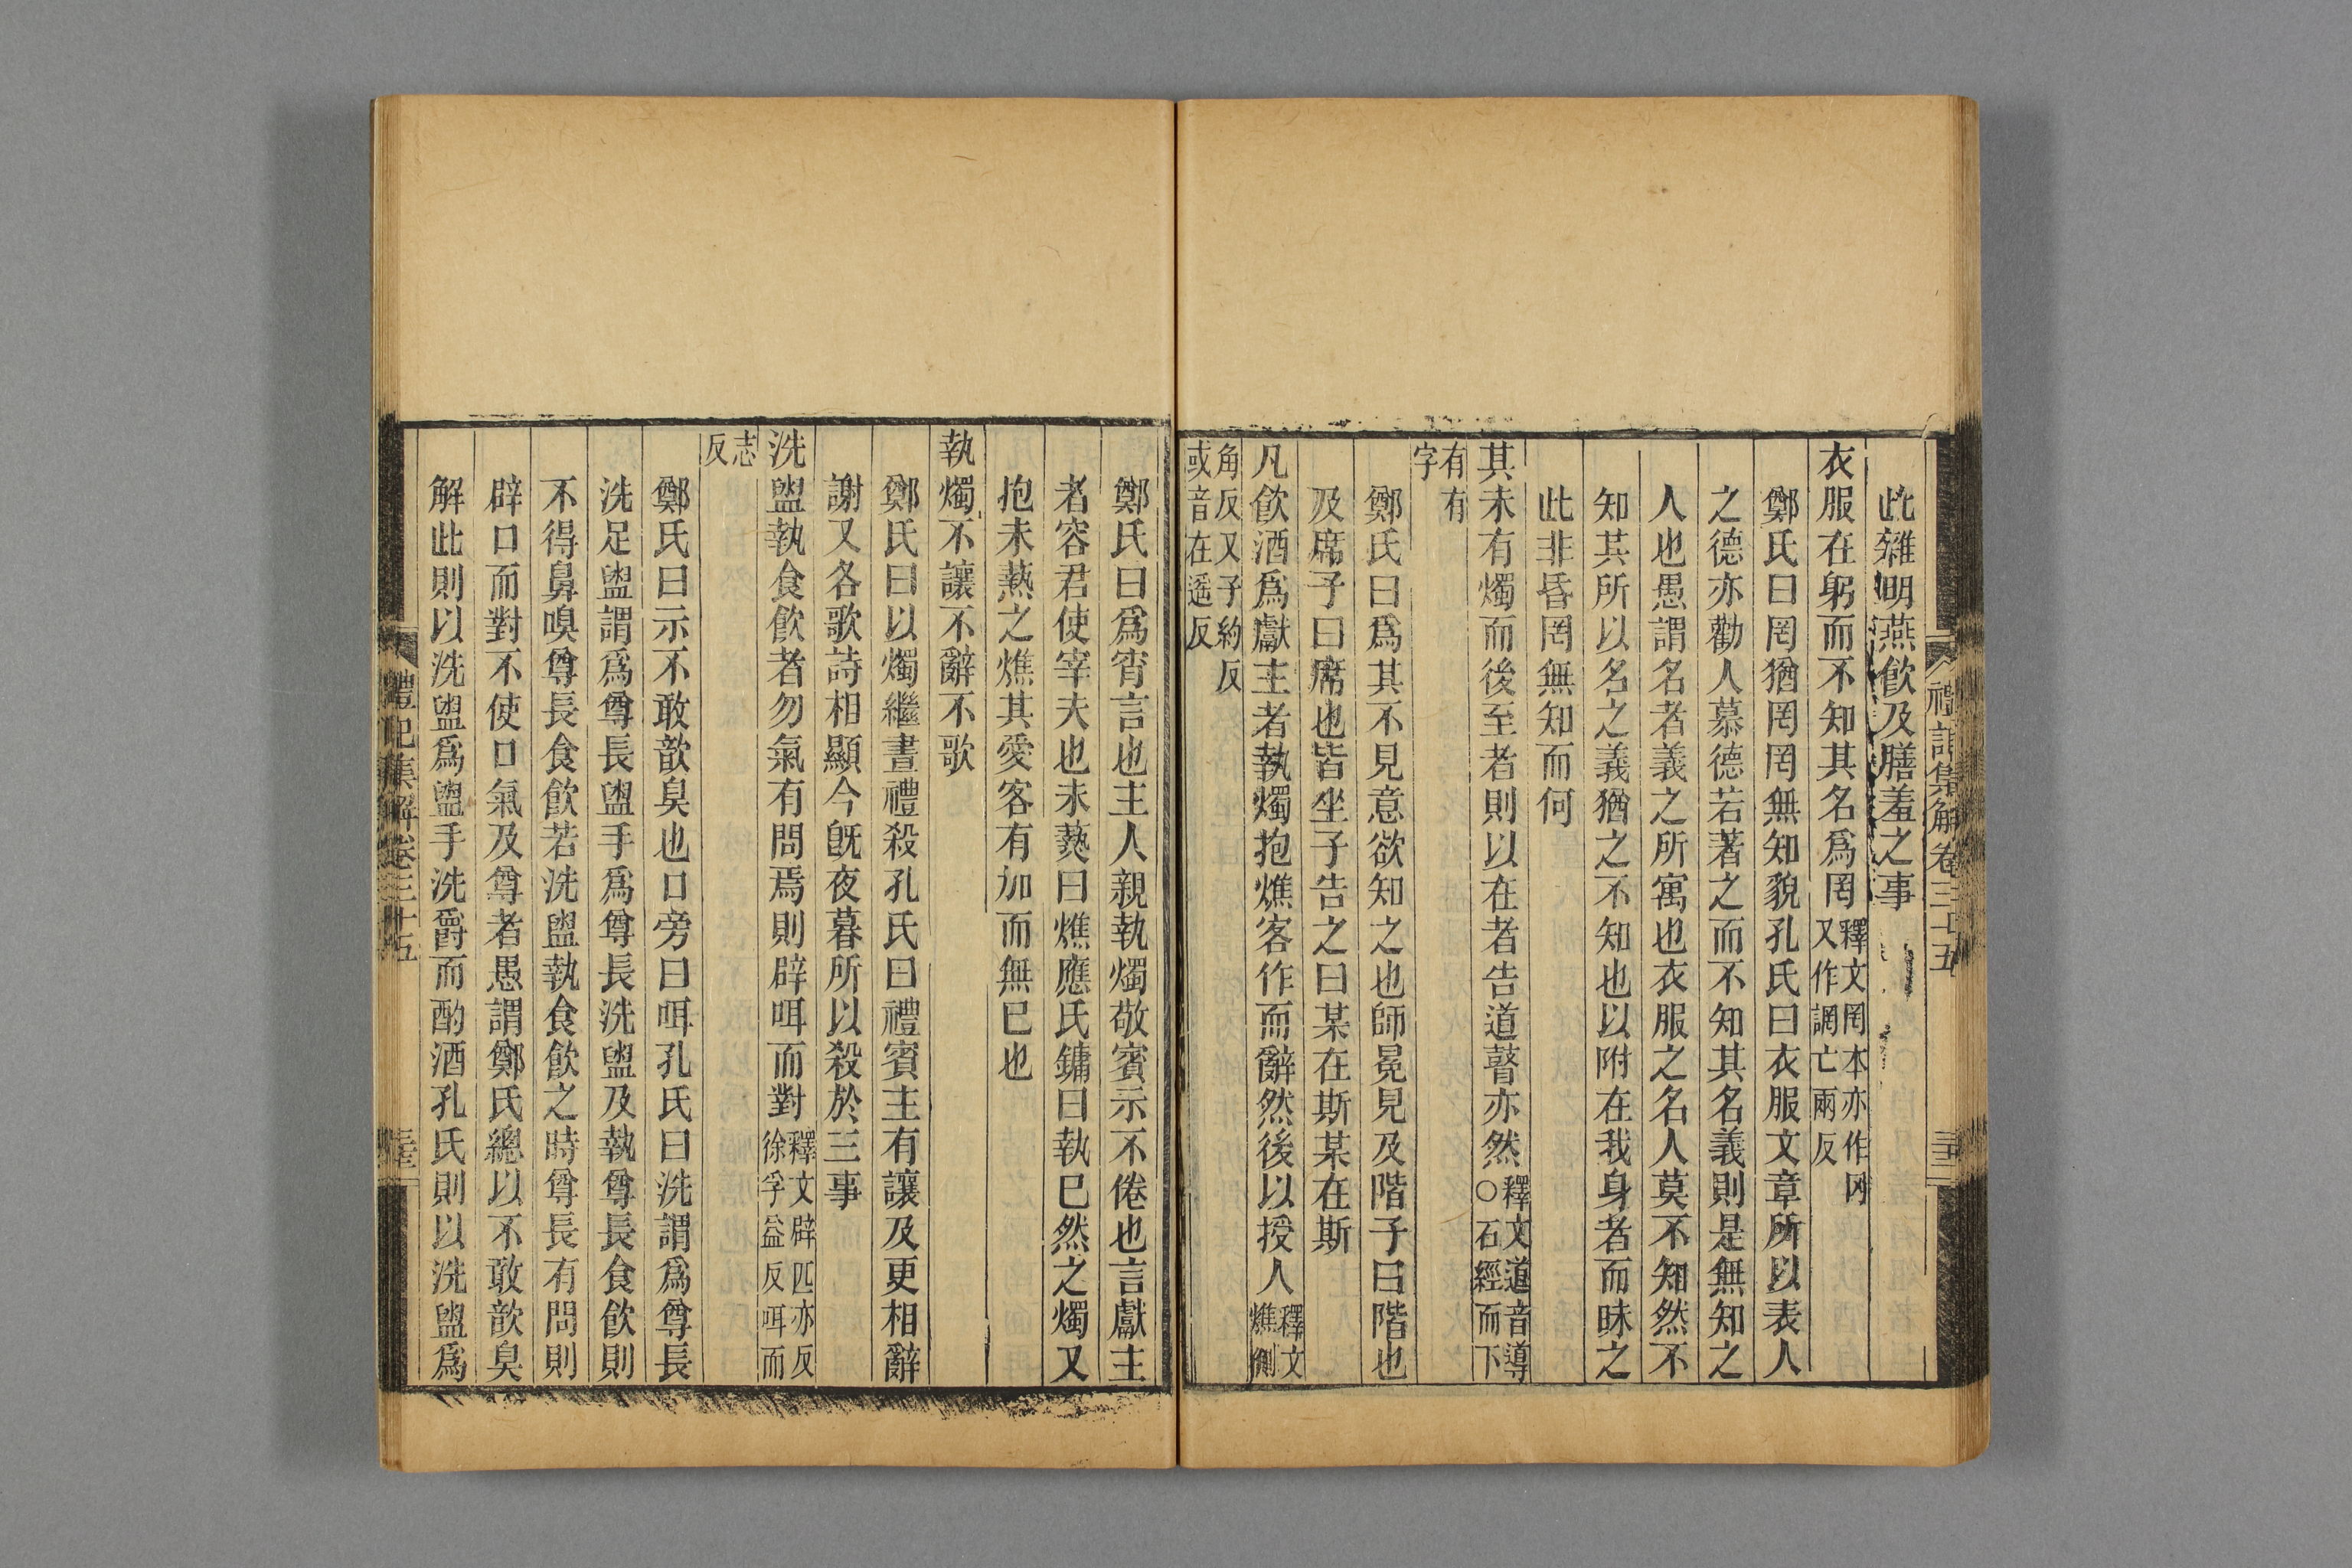 禮記集解卷三十五
此雜明燕飲及膳羞之事
衣服在躬而不知其名爲罔釋文罔本亦作冈又作䋄亡兩反
鄭氏曰罔猶罔罔無知貌孔氏曰衣服文章所以表人
之德亦勸人慕德若著之而不知其名義則是無知之
人也愚謂名者義之所寓也衣服之名人莫不知然不
知其所以名之義猶之不知也以附在我身者而昧之
此非昏罔無知而何
其未有燭而後至者則以在者告道瞽亦然釋文道音導○石經而下
有有字
鄭氏曰爲其不見意欲知之也師冕見及階子曰階也
及席子曰席也皆坐子告之曰某在斯某在斯
凡飲酒爲獻主者執燭抱燋客作而辭然後以授人釋文燋側
角反又子約反或音在遥反
鄭氏曰爲宵言也主人親執燭敬賓示不倦也言獻主
者容君使宰夫也未爇曰燋應氏鏞曰執已然之燭又
抱未爇之燋其愛客有加而無已也
執燭不讓不辭不歌
鄭氏曰以燭繼晝禮殺孔氏曰禮賓主有讓及更相辭
謝又各歌詩相顯今旣夜暮所以殺於三事
洗盥執食飲者勿氣有問焉則辟咡而對釋文辟匹亦反徐孚益反咡而
志反
鄭氏曰示不敢歆臭也口旁曰咡孔氏曰洗謂爲尊長
洗足盥謂爲尊長盥手爲尊長洗盥及執尊長食飲則
不得鼻嗅尊長食飲若洗盥執食飲之時尊長有問則
辟口而對不使口氣及尊者愚謂鄭氏總以不敢歆臭
解此則以洗盥爲盥手洗爵而酌酒孔氏則以洗盥爲
禮記集解卷三十五